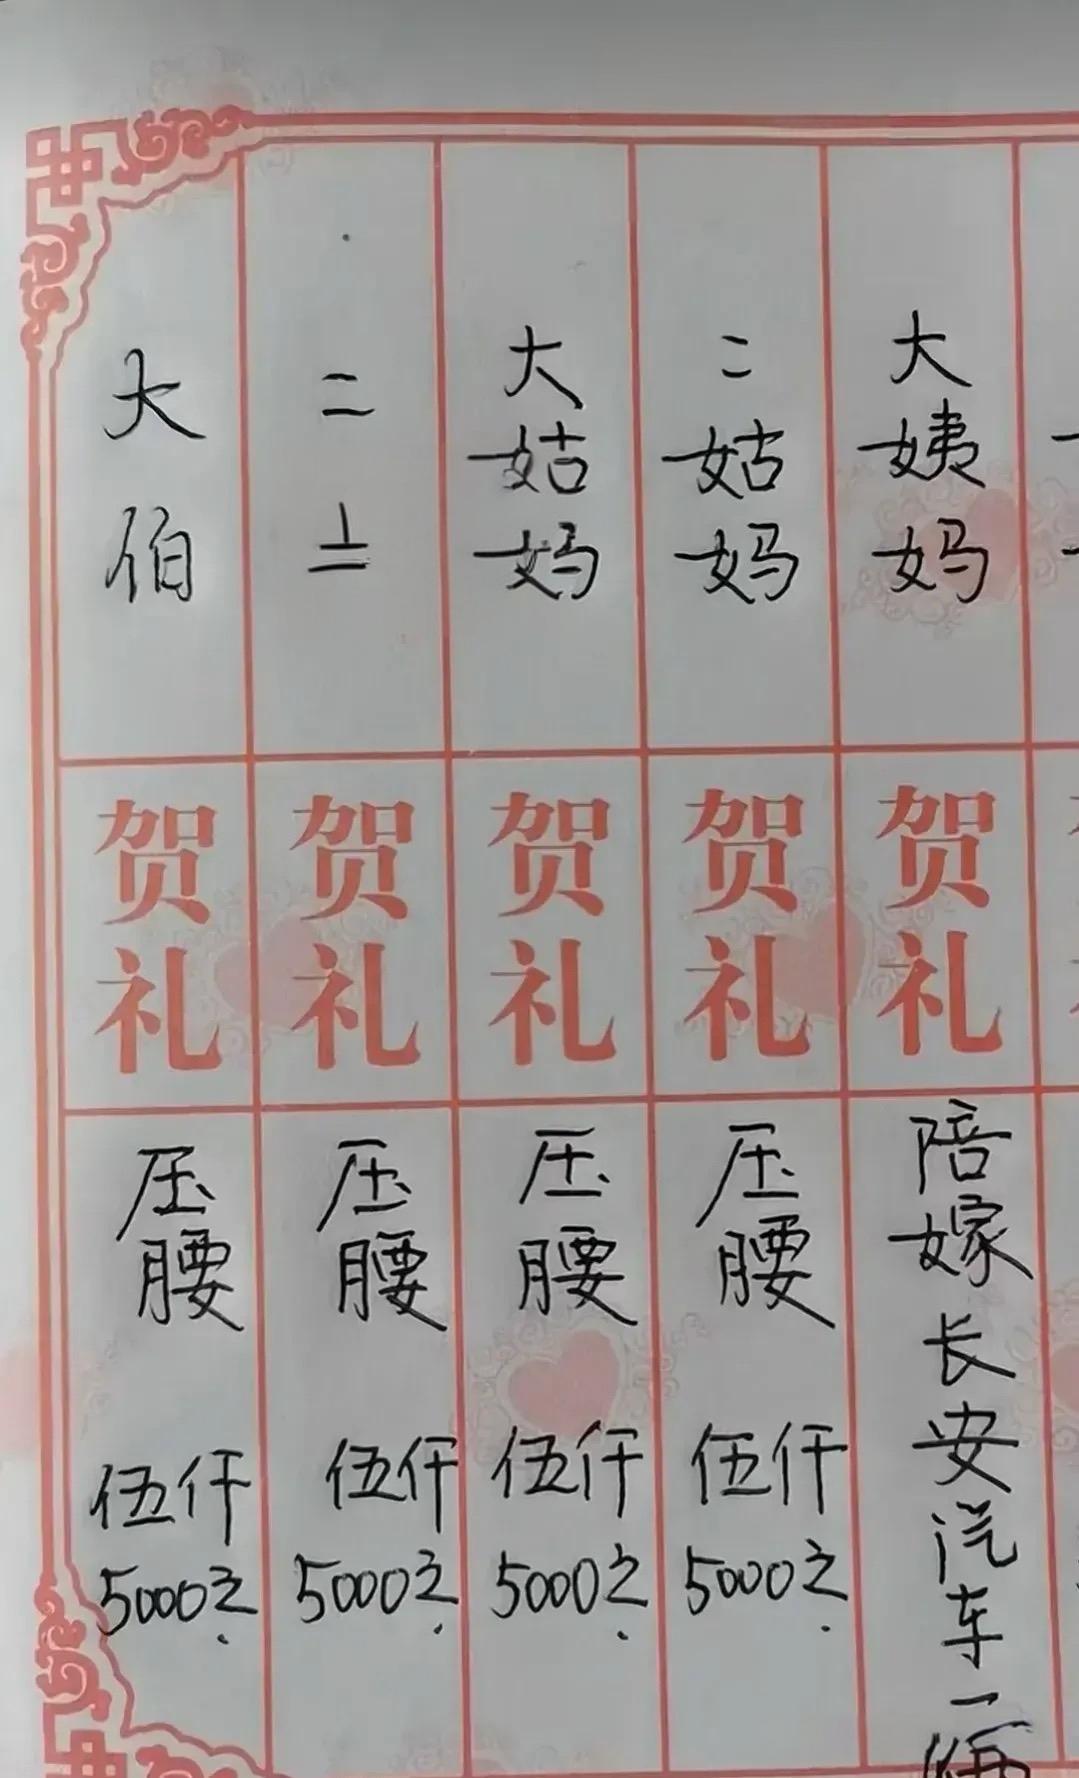 大伯
贺礼
压腰
伍仟
5000元.
二
贺礼
压腰
伍仟
5000元.
大姑妈
贺礼
压腰
伍仟
5000元.
二姑妈
贺礼
压腰
伍仟
5000元.
大姨妈
贺礼
陪嫁长安汽车一